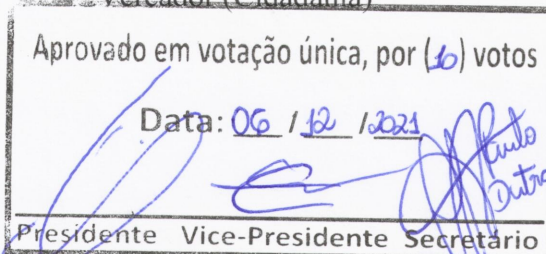 Vereador (Cidadania)
Aprovado em votação única, por (10) votos
Data: 06 / 12 / 2021
Paulo
Dutra
Presidente Vice-Presidente Secretário